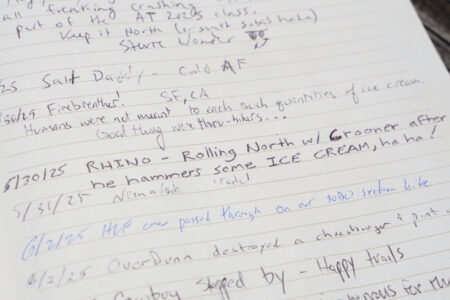 all freaking crashing
part of the AT 2025 class.
Keep it North (or south sobos haha)
Stevie Wonder
/25 Salt Daddy - Cold AF
/30/25 Firebreather! SF, CA
Humans were not meant to each such quantities of ice cream.
Good thing we're thru-hikers...
5/30/25 RHINO - Rolling North w/ Crooner after
he hammers some ICE CREAM, ha ha!
5/31/25
6/2/25 crew passed through on our SOBO section hike
6/2/25 OverDunn destroyed a cheeseburger & pint
Cowboy stopped by - Happy trails